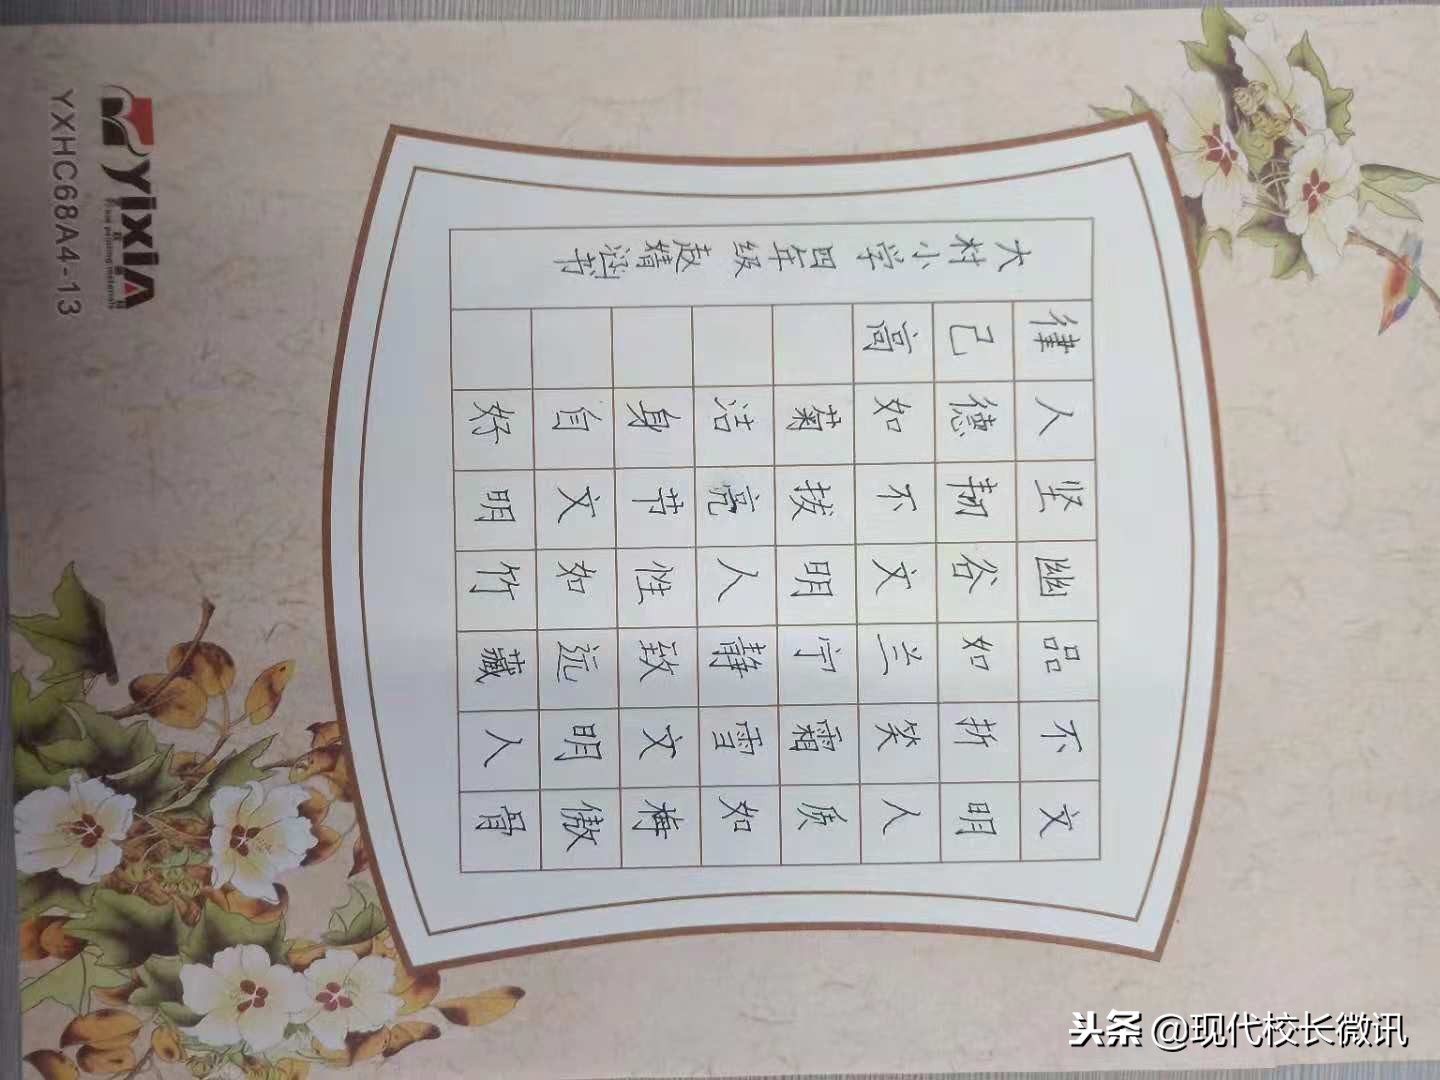 文明人质如梅傲骨
不折笑霜雪文明人
品如兰宁静致远藏
幽谷文明人性如竹
坚韧不拔亮节文明
人德如菊洁身自好
律己高
大村小学 四年级
YixiA
YXHC68A4-13
头条 @现代校长微讯